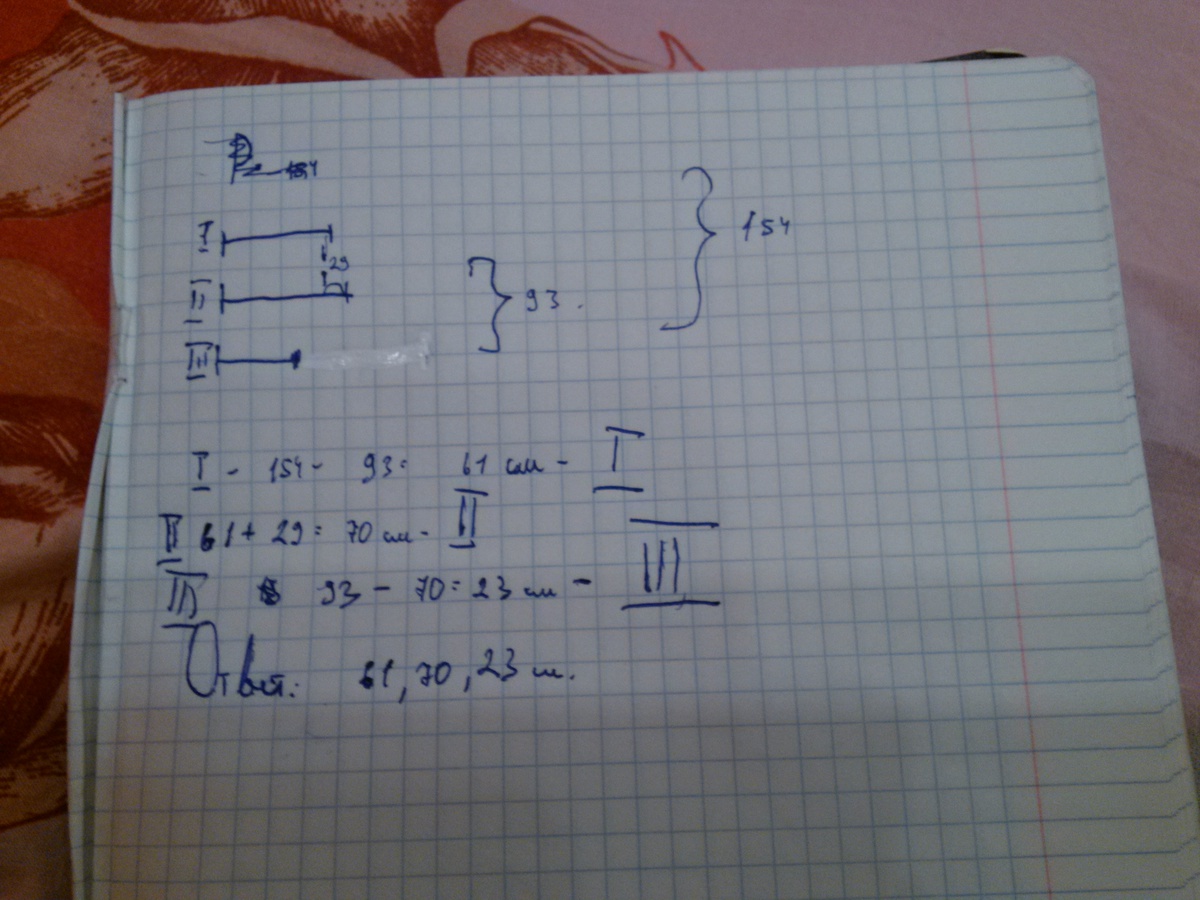 P = 154
I
29
154
II
93.
III
I - 154 - 93 = 61 см - I
II 61 + 29 = 70 см - II
III 93 - 70 = 23 см - III
Ответ: 61, 70, 23 см.